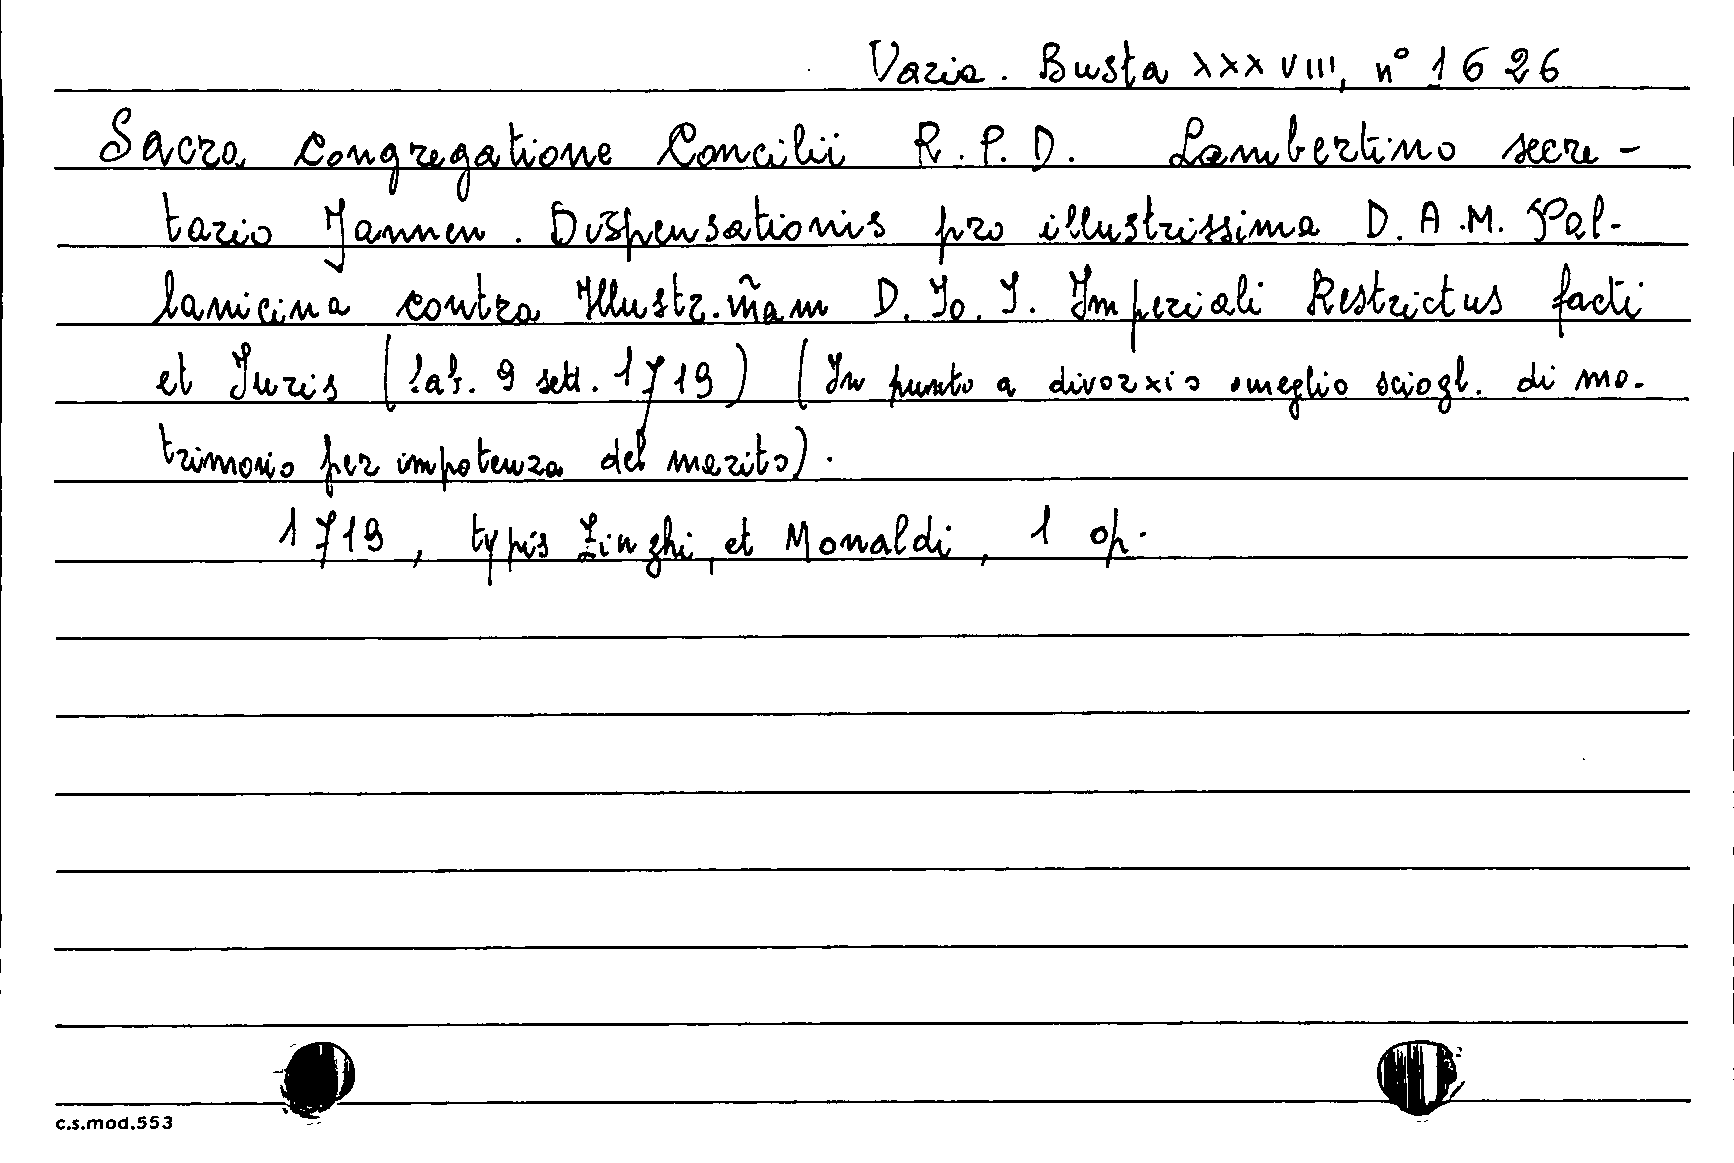 Varia. Busta XXXVIII, n° 1626
Sacra Congregatione Concilii R.P.D. Lambertino secre-
tario Jannen. Dispensationis pro illustrissima D.A.M. Pal-
lavicina contra Illustr.m̃am D. Jo. J. Imperiali Restrictus facti
et Juris (Sab. 9 sett. 1719) (In punto a divorzio o meglio sciogl. di ma-
trimonio per impotenza del marito).
1719, typis Zinghi, et Monaldi, 1 op.
c.s.mod.553